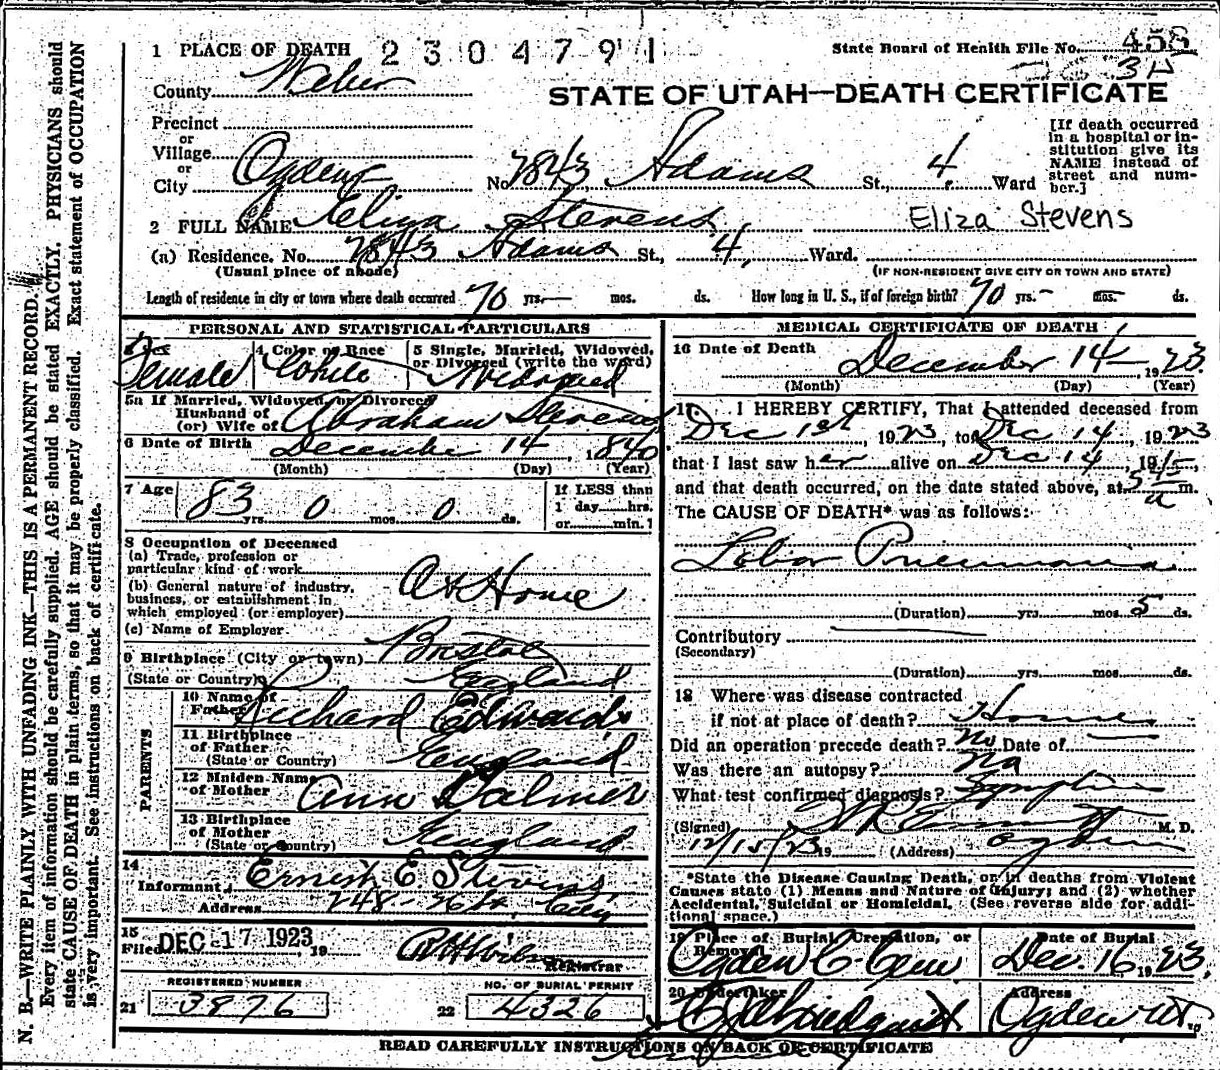 1 PLACE OF DEATH 2304791 State Board of Health File No. 458
County Weber
STATE OF UTAH—DEATH CERTIFICATE
Precinct
or
Village
or
City Ogden No 2843 Adams St., 4 Ward
[If death occurred
in a hospital or in-
stitution give its
NAME instead of
street and num-
ber.]
2 FULL NAME Eliza Stevens Eliza Stevens
(a) Residence. No. 2843 Adams St., 4, Ward.
(Usual place of abode) (IF NON-RESIDENT GIVE CITY OR TOWN AND STATE)
Length of residence in city or town where death occurred 70 yrs.— mos. ds. How long in U. S., if of foreign birth? 70 yrs.- mos. ds.
PERSONAL AND STATISTICAL PARTICULARS
3 Sex 4 Color or Race 5 Single, Married, Widowed,
or Divorced (write the word)
Female White Widowed
5a If Married, Widowed, or Divorced
Husband of
(or) Wife of Abraham Stevens
6 Date of Birth December 14, 1840
(Month) (Day) (Year)
7 Age 83 yrs. 0 mos. 0 ds.
If LESS than
1 day hrs.
or min. ?
8 Occupation of Deceased
(a) Trade, profession or
particular kind of work At Home
(b) General nature of industry,
business, or establishment in
which employed (or employer)
(c) Name of Employer
9 Birthplace (City or town) Bristol
(State or Country) England
PARENTS
10 Name of
Father Richard Edwards
11 Birthplace
of Father
(State or Country) England
12 Maiden Name
of Mother Ann Palmer
13 Birthplace
of Mother
(State or Country) England
14
Informant Ernest E Stevens
Address 248 - 26 St, City
15
Filed DEC 17 1923, 19
Registrar
REGISTERED NUMBER NO. OF BURIAL PERMIT
21 3876 22 4326
MEDICAL CERTIFICATE OF DEATH
16 Date of Death December 14 1923
(Month) (Day) (Year)
17. I HEREBY CERTIFY, That I attended deceased from
Dec 1st, 1923, to Dec 14, 1923
that I last saw her alive on Dec 14, 19
and that death occurred, on the date stated above, at 5 45 a m.
The CAUSE OF DEATH* was as follows:
Lobar Pneumonia
(Duration) yrs. mos. 5 ds.
Contributory
(Secondary)
(Duration) yrs. mos. ds.
18 Where was disease contracted
if not at place of death? Home
Did an operation precede death? No Date of
Was there an autopsy? No
What test confirmed diagnosis? Symptoms
(Signed) M. D.
12/15/23 19 (Address) Ogden
*State the Disease Causing Death, or in deaths from Violent
Causes state (1) Means and Nature of Injury; and (2) whether
Accidental, Suicidal or Homicidal. (See reverse side for addi-
tional space.)
19 Place of Burial, Cremation, or
Removal
Date of Burial
Ogden C. Cem Dec. 16, 1923,
20 Undertaker Address
Ogden, Ut.
READ CAREFULLY INSTRUCTIONS ON BACK OF CERTIFICATE
N. B.—WRITE PLAINLY WITH UNFADING INK—THIS IS A PERMANENT RECORD.
Every item of information should be carefully supplied. AGE should be stated EXACTLY. PHYSICIANS should
state CAUSE OF DEATH in plain terms, so that it may be properly classified. Exact statement of OCCUPATION
is very important. See instructions on back of certificate.